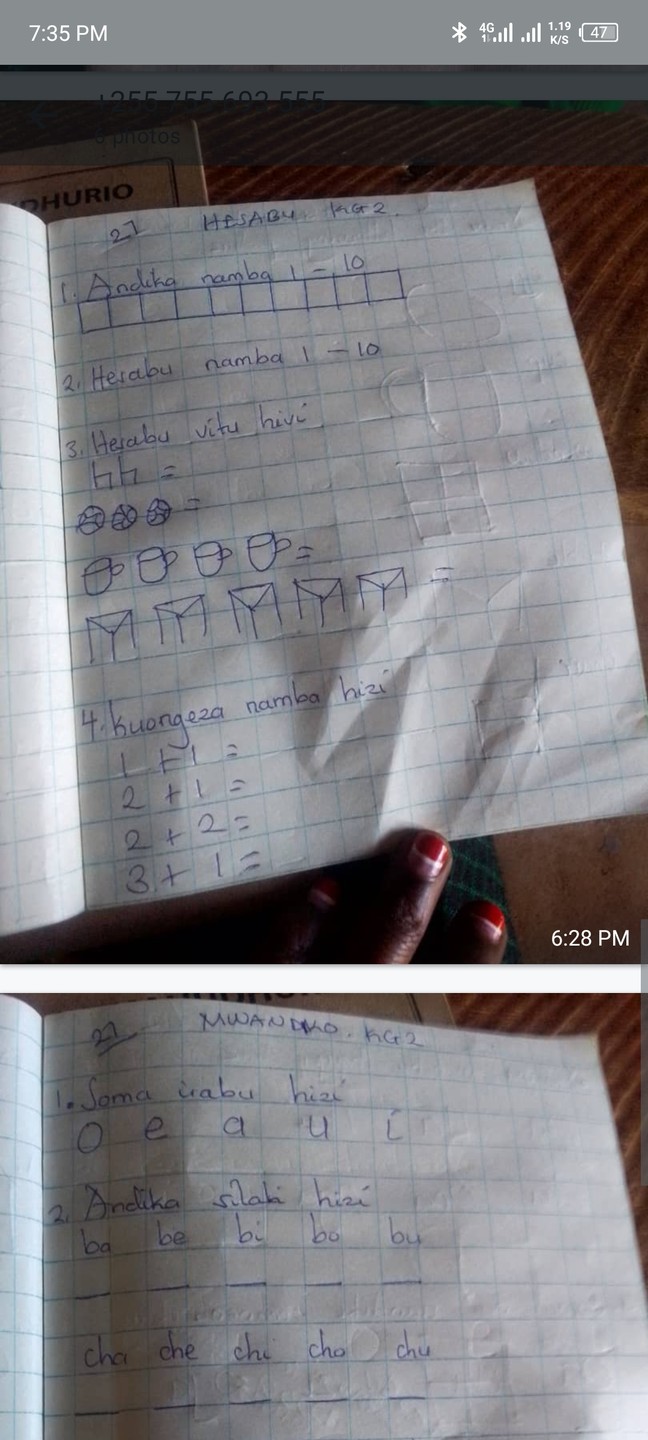 7:35 PM
4G
1.19
K/S
47
+255 755 692 555
photos
DHURIO
27 HESABU KG2.
1. Andika namba 1 - 10
2. Hesabu namba 1 - 10
3. Hesabu vitu hivi
=
=
=
=
4. kuongeza namba hizi
1 + 1 =
2 + 1 =
2 + 2 =
3 + 1 =
6:28 PM
27 MWANDIKO. KG2
1. Soma irabu hizi
O e a u i
2. Andika silabi hizi
ba be bi bo bu
cha che chi cho chu